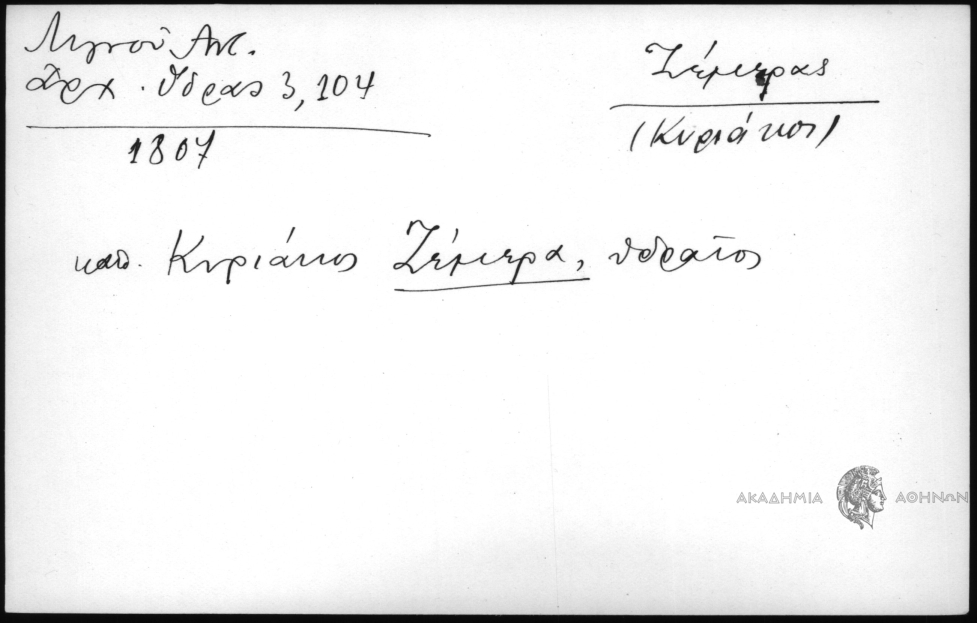 Λιγνοῦ Αντ.
Ἀρχ. Ὕδρας 3, 104
1807
Ζέμπερας
(Κυριάκος)
καπ. Κυριάκος Ζέμπερα, ὑδραῖος
ΑΚΑΔΗΜΙΑ ΑΘΗΝΩΝ